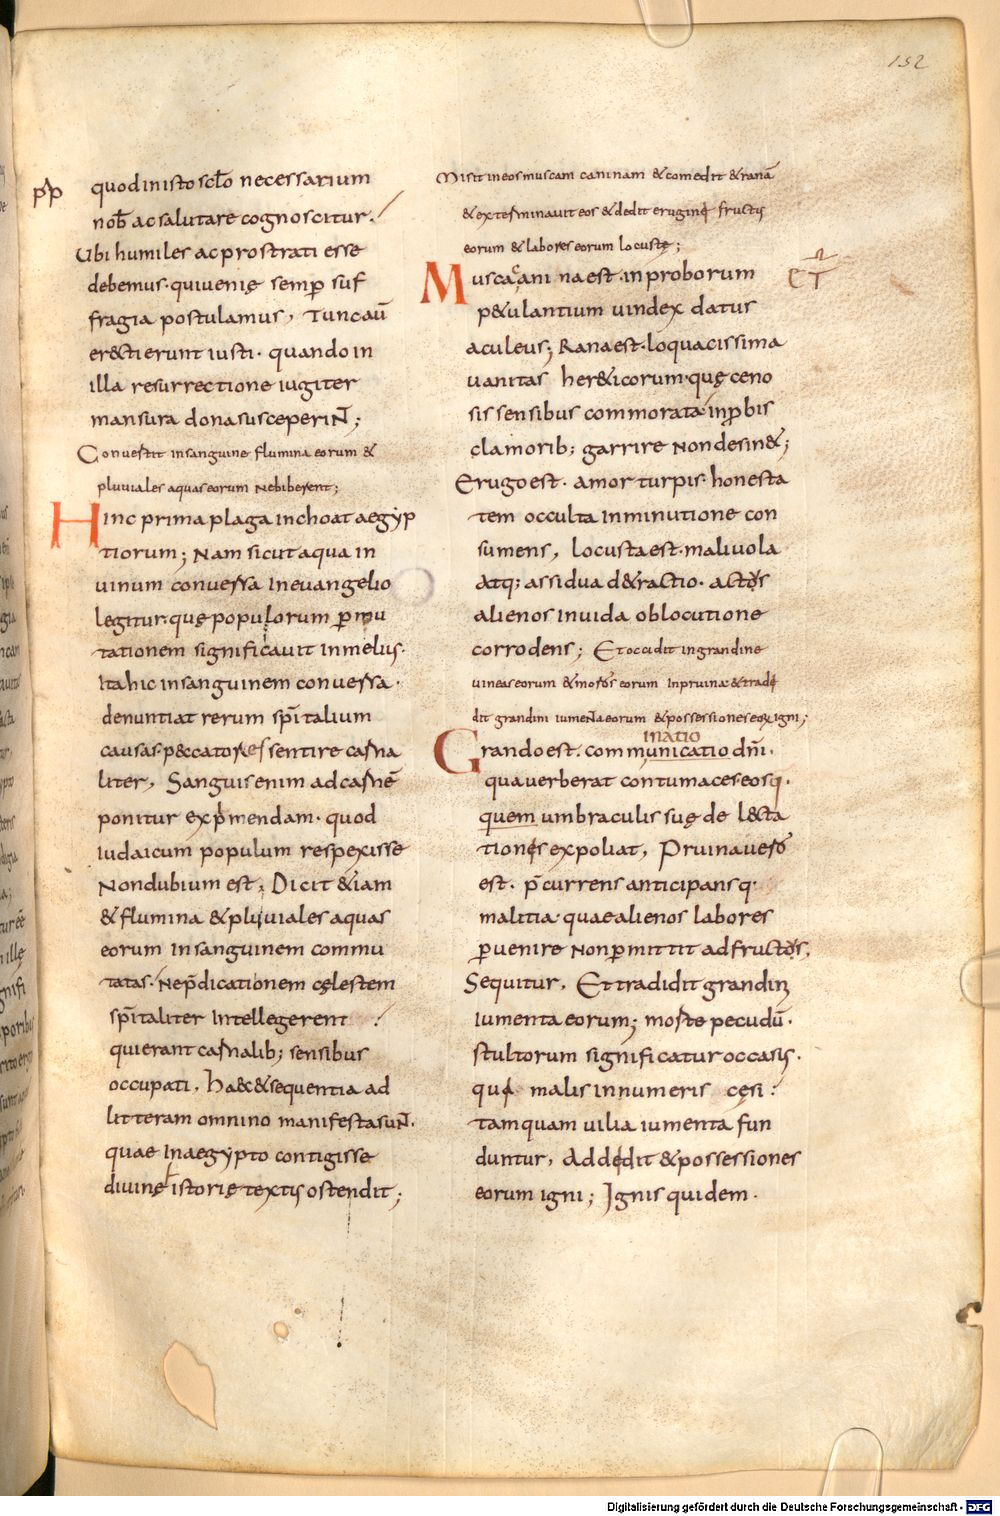 152
pꝑ
quod in isto scło necessarium
nob̄ ac salutare cognoscitur.
Ubi humiles ac prostrati esse
debemus· qui uenię semp̄ suf
fragia postulamus, Tunc aū
er&ti erunt iusti· quando in
illa resurrectione iugiter
mansura dona susceperiNT;
Conuertit in sanguine flumina eorum &
pluuiales aquas eorum ne biberent;
Hinc prima plaga inchoat aegyp
tiorum; Nam sicut aqua in
uinum conuersa in euangelio
legitur· quę populorum ꝑmu
tationem significauit in melius·
Ita hic in sanguinem conuersa·
denuntiat rerum sp̄italium
causas· peccatores sentire carna
liter, Sanguis enim ad carnē
ponitur exp̄mendam· quod
iudaicum populum respexisse
Non dubium est; Dicit &iam
& flumina & pluuiales aquas
eorum in sanguinem commu
tatas· Ne p̄dicationem cęlestem
sp̄italiter intellegerent
qui erant carnalib; sensibus
occupati, Haec & sequentia ad
litteram omnino manifesta suNT·
quae in aegypto contigisse
diuinę istorię textis ostendit;
Misit in eos muscam caninam & comedit & ranā
& exterminauit eos & dedit erugini fructus
eorum & labores eorum locustę;
Musca canina est· inproborum
p&ulantium uindex datus
aculeus; Rana est· loquacissima
uanitas her&icorum· quę ceno
sis sensibus commorata inꝓbis
clamorib; garrire non desin&;
Erugo est· amor turpis· honesta
tem occulta inminutione con
sumens, locusta est· maliuola
atq; assidua d&ractio· actus
alienos inuida oblocutione
corrodens; Et occidit in grandine
uineas eorum & moros eorum in pruina· & tradi
dit grandini iumenta eorum & possessiones eoꝝ igni;
inatio
Grando est· communicatio dn̄i·
qua uerberat contumaces· eosq·
quem umbraculis suę de lecta
tionis expoliat, Pruina uero
est· p̄currens anticipansq·
malitia· quae alienos labores
ꝑuenire non ꝑmittit ad fructus,
Sequitur, Et tradidit grandini
iumenta eorum; morte pecudū·
stultorum significatur occasus·
qui malis innumeris cęsi
tamquam uilia iumenta fun
duntur, Addidit & possessiones
eorum igni; Ignis quidem·
Digitalisierung gefördert durch die Deutsche Forschungsgemeinschaft - DFG